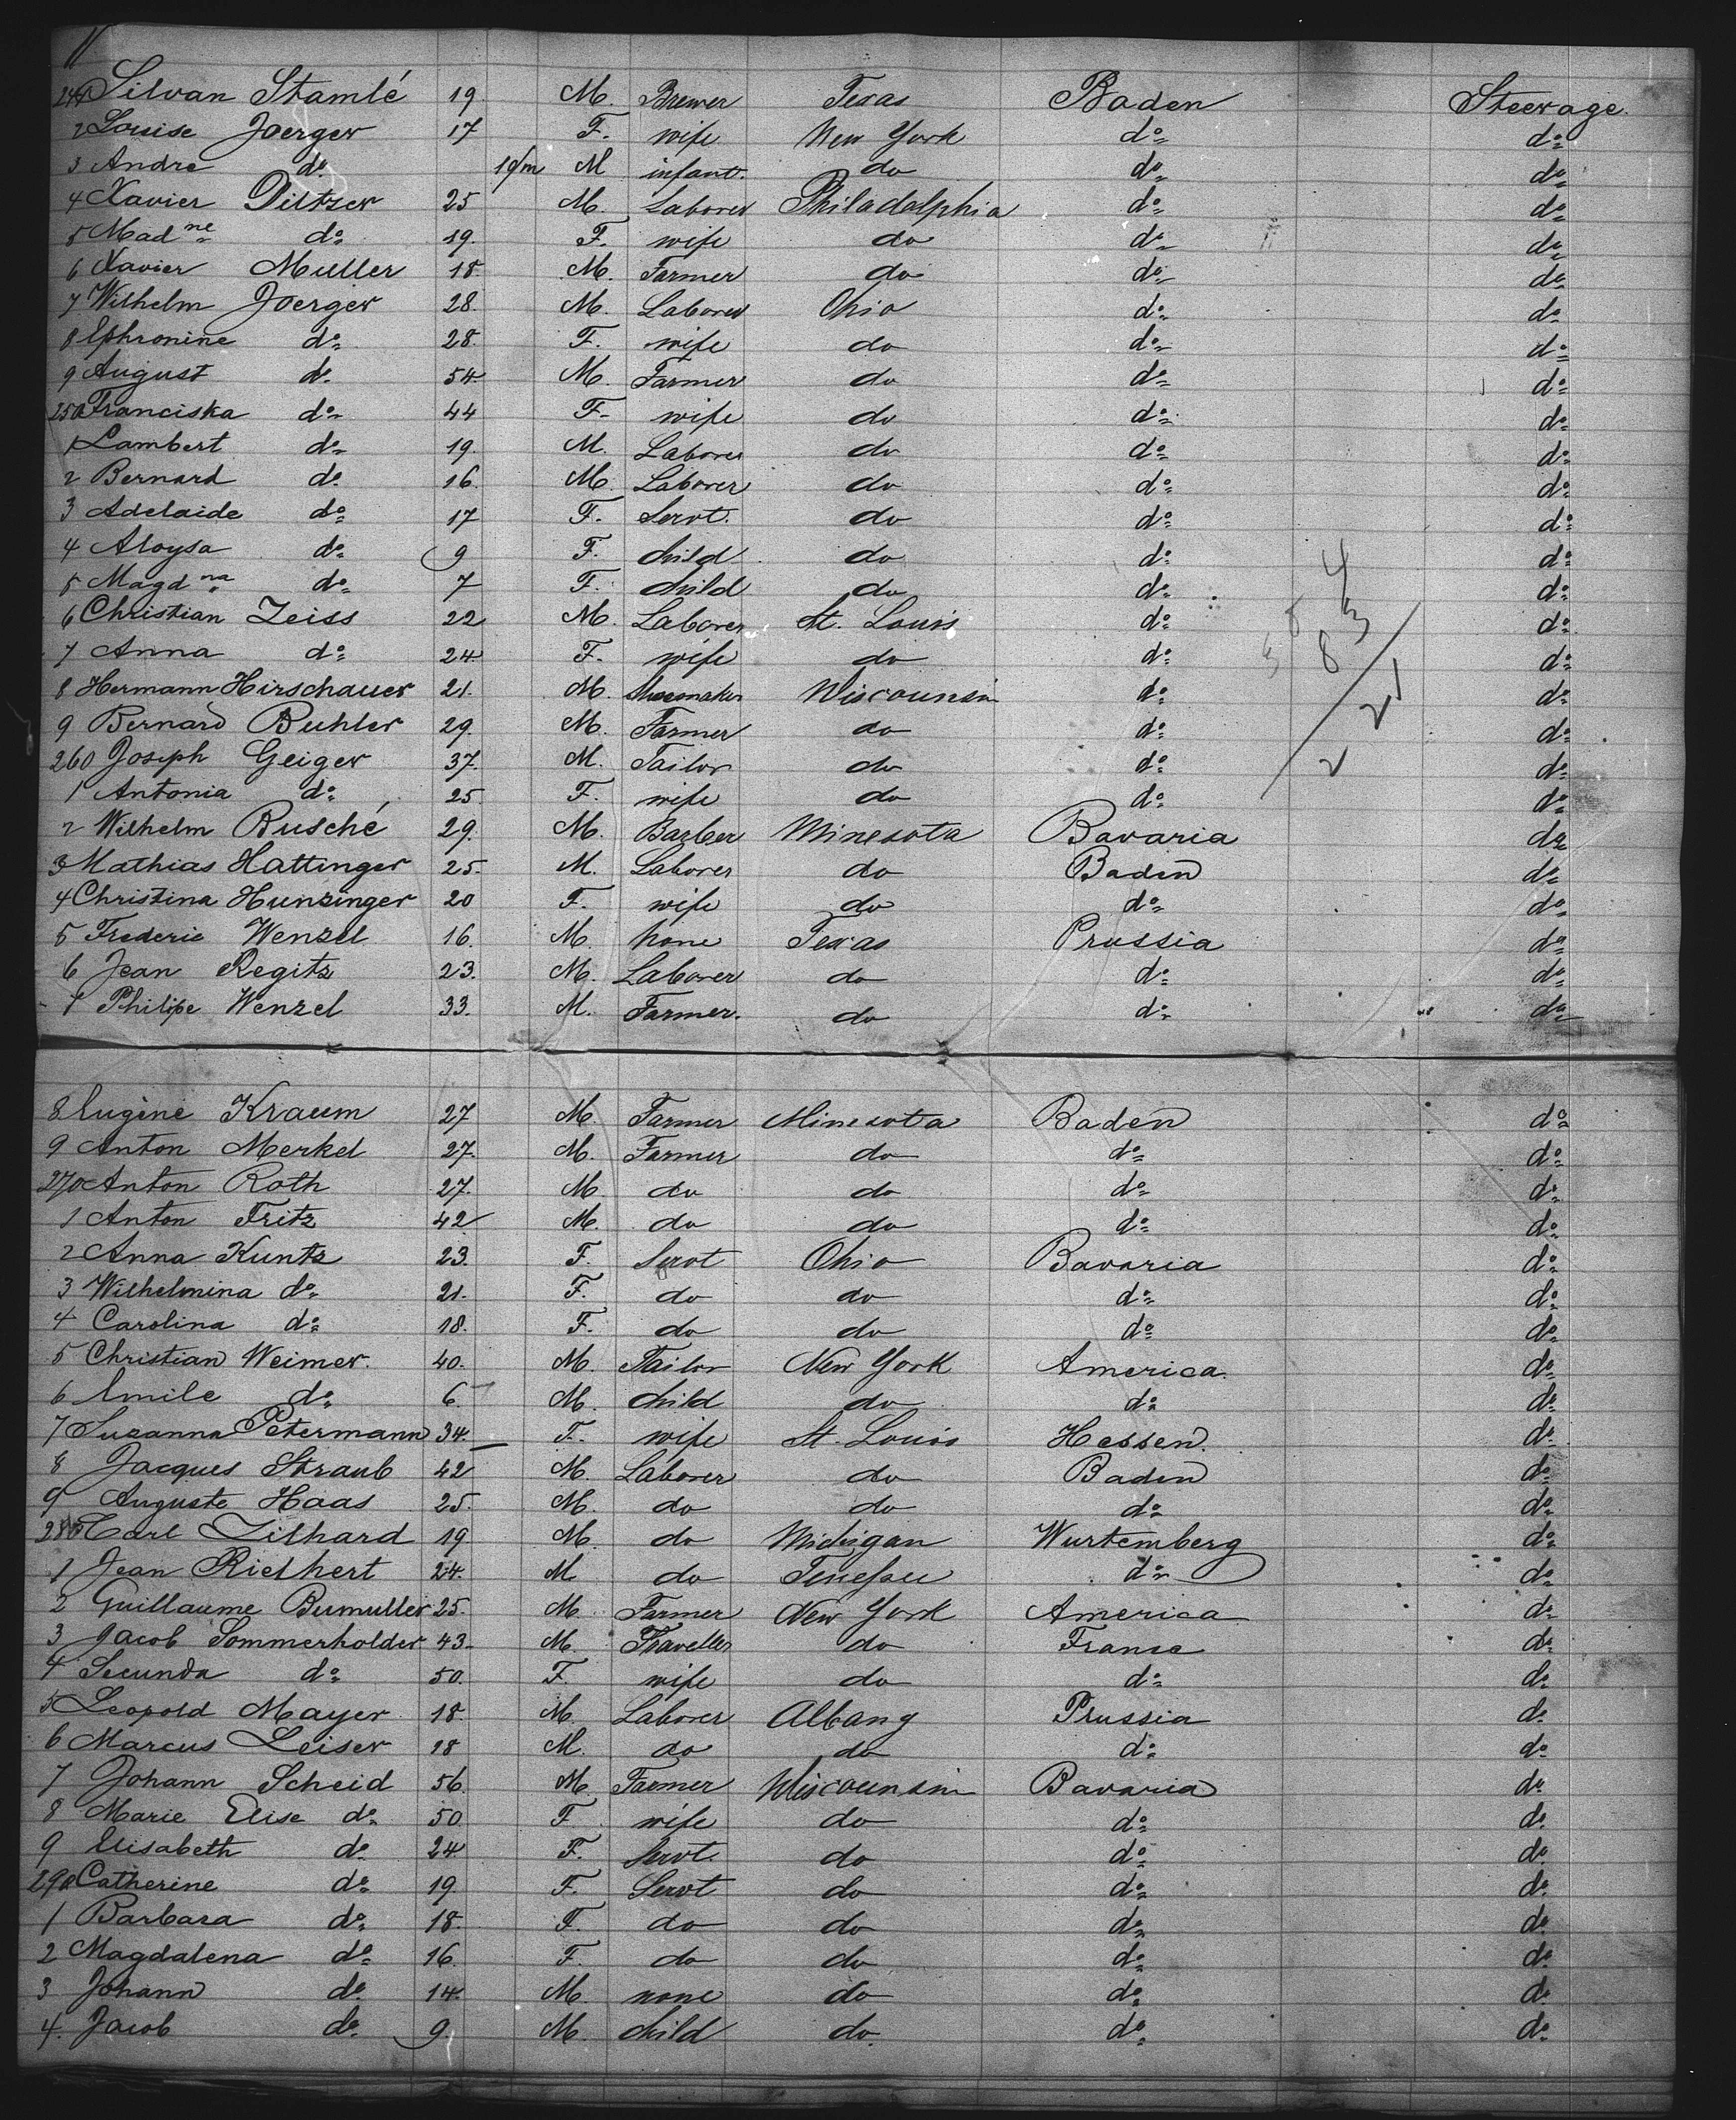 241 Silvan Stamlé 19. M. Brewer Texas Baden Steerage.
2 Louise Joerger 17 F. wife New York do do
3 Andre do M infant. do do do
4 Xavier Diltzer 25 M. Laborer Philadelphia do do
5 Mad ne do 19. F. wife do do do
6 Xavier Muller 18. M. Farmer do do do
7 Wilhelm Joerger 28. M. Laborer Ohio do do
8 Ephronine do 28. F. wife do do do
9 August do 54. M. Farmer do do do
250 Franciska do 44 F. wife do do do
1 Lambert do 19. M. Laborer do do do
2 Bernard do 16. M. Laborer do do do
3 Adelaide do 17 F. Servt. do do do
4 Aloysa do 9 F. child do do do
5 Magd na do 7 F. child do do do
6 Christian Zeiss 22 M. Laborer St. Louis do do
7 Anna do 24 F. wife do do do
8 Hermann Hirschauer 21. M. Shoemaker Wiscounsin do do
9 Bernard Buhler 29. M. Farmer do do do
260 Joseph Geiger 37. M. Tailor do do do
1 Antonia do 25 F. wife do do do
2 Wilhelm Rusché 29. M. Barber Minesota Bavaria do
3 Mathias Hattinger 25. M. Laborer do Baden do
4 Christina Hunzinger 20 F. wife do do do
5 Frederic Wenzel 16. M. none Texas Prussia do
6 Jean Regitz 23. M. Laborer do do do
7 Philipe Wenzel 33. M. Farmer. do do do
8 Eugène Kraum 27 M. Farmer Minesota Baden do
9 Anton Merkel 27. M. Farmer do do do
270 Anton Roth 27. M do do do do
1 Anton Fritz 42 M. do do do do
2 Anna Kuntz 23. F. Servt Ohio Bavaria do
3 Wilhelmina do 21. F. do do do do
4 Carolina do 18. F. do do do do
5 Christian Weimer. 40. M. Tailor New York America. do
6 Emile do 6. M. child do do do
7 Suzanna Petermann 34. F. wife St. Louis Hessen. do
8 Jacques Straub 42 M. Laborer do Baden do
9 Auguste Haas 25. M. do do do do
280 Carl Zilhard 19 M. do Michigan Wurtemberg do
1 Jean Riethert 24. M do Tenessee do do
2 Guillaume Bumuller 25. M. Farmer New York America do
3 Jacob Sommerholder 43. M. Traveller do France do
4 Secunda do 50. F. wife do do do
5 Leopold Mayer 18 M. Laborer Albany Prussia do
6 Marcus Leiser 18 M. do do do do
7 Johann Scheid 56. M. Farmer Wiscounsin Bavaria do
8 Marie Elise do 50 F wife do do do
9 Elisabeth do 24 F. Servt. do do do
290 Catherine do 19. F. Servt do do do
1 Barbara do 18. F. do do do do
2 Magdalena do 16. F. do do do do
3 Johann do 14. M. none do do do
4. Jacob do 9 M. child do do do